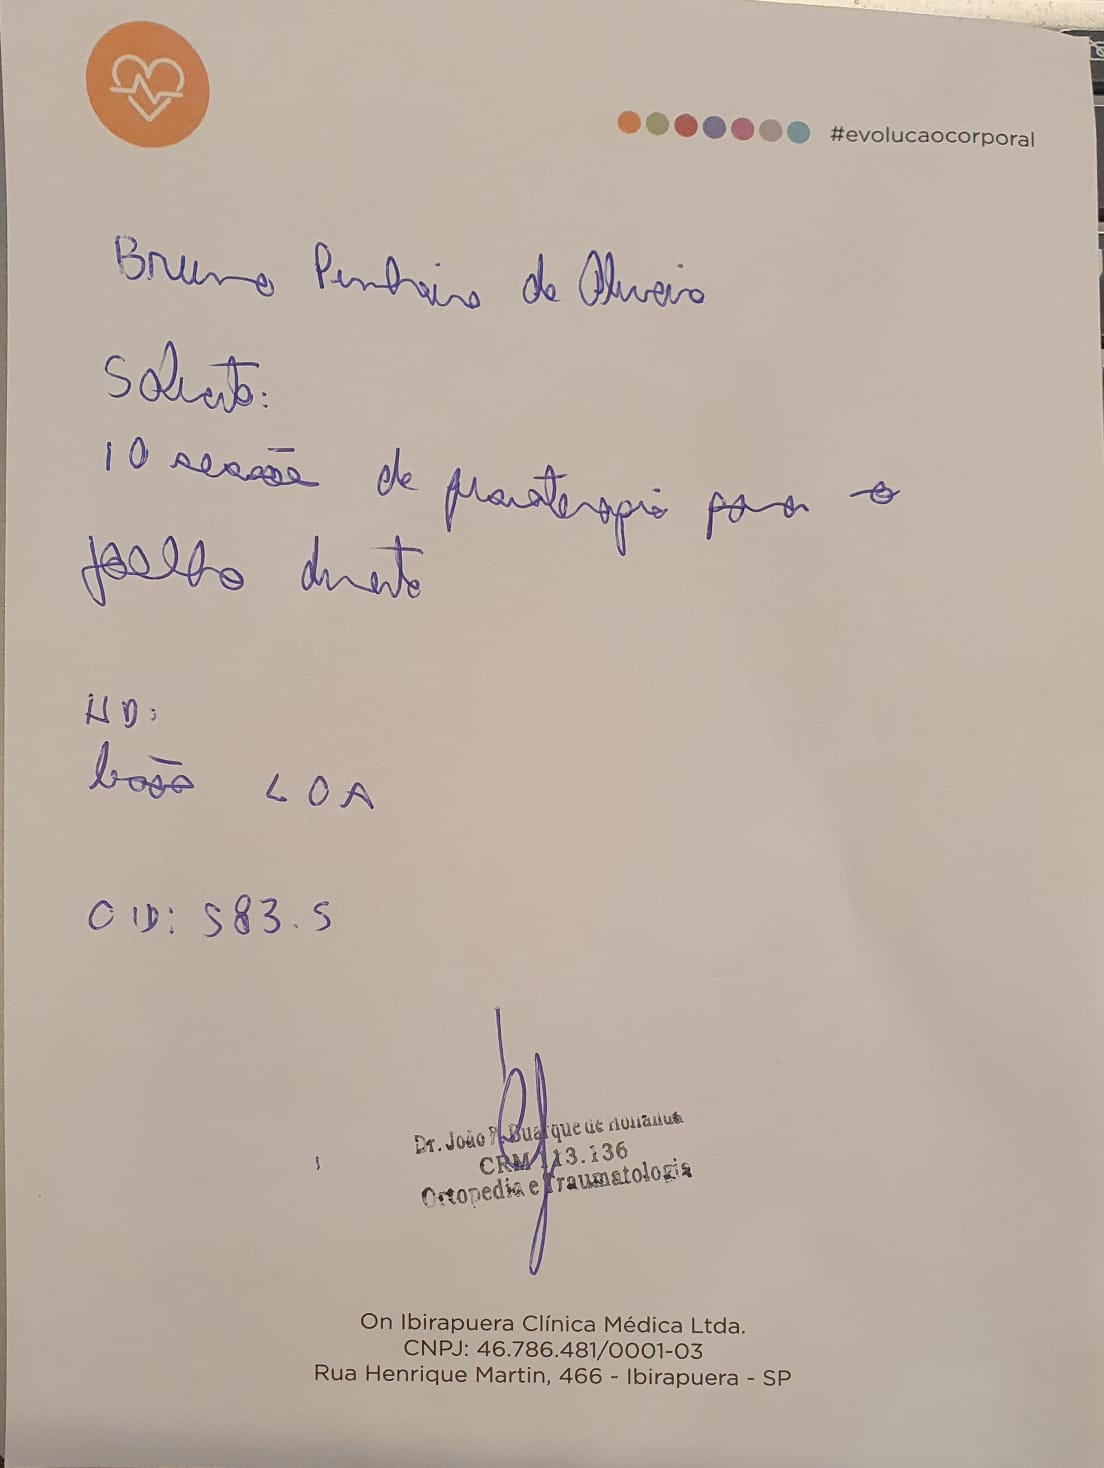 #evolucaocorporal
Bruno Pinheiro de Oliveira
Solicito:
10 sessões de fisioterapia para o
joelho direito
HD:
lesão LCA
CID: S83.5
Dr. João P. Buarque de Hollanda
CRM 113.136
Ortopedia e Traumatologia
On Ibirapuera Clínica Médica Ltda.
CNPJ: 46.786.481/0001-03
Rua Henrique Martin, 466 - Ibirapuera - SP